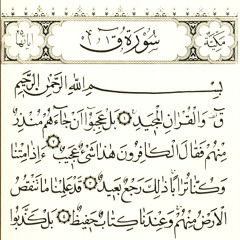 مكية
سُورَةُ ق
آياتها
بِسْمِ اللهِ الرَّحْمٰنِ الرَّحِيمِ
قٓ وَالْقُرْاٰنِ الْمَجِيدِ ۝ بَلْ عَجِبُوا أَنْ جَاءَهُمْ مُنْذِرٌ
مِنْهُمْ فَقَالَ الْكَافِرُونَ هٰذَا شَيْءٌ عَجِيبٌ ۝ ءَاِذَا مِتْنَا
وَكُنَّا تُرَابًا ذٰلِكَ رَجْعٌ بَعِيدٌ ۝ قَدْ عَلِمْنَا مَا تَنْقُصُ
الْاَرْضُ مِنْهُمْ وَعِنْدَنَا كِتَابٌ حَفِيظٌ ۝ بَلْ كَذَّبُوا